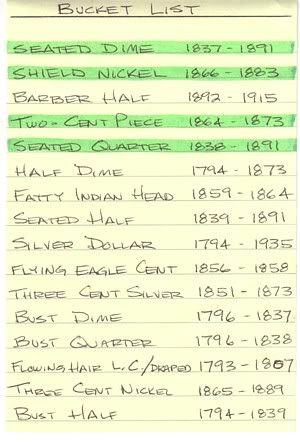 BUCKET LIST
SEATED DIME 1837-1891
SHIELD NICKEL 1866-1883
BARBER HALF 1892-1915
TWO-CENT PIECE 1864-1873
SEATED QUARTER 1838-1891
HALF DIME 1794-1873
FATTY INDIAN HEAD 1859-1864
SEATED HALF 1839-1891
SILVER DOLLAR 1794-1935
FLYING EAGLE CENT 1856-1858
THREE CENT SILVER 1851-1873
BUST DIME 1796-1837
BUST QUARTER 1796-1838
FLOWING HAIR L.C./DRAPED 1793-1807
THREE CENT NICKEL 1865-1889
BUST HALF 1794-1839